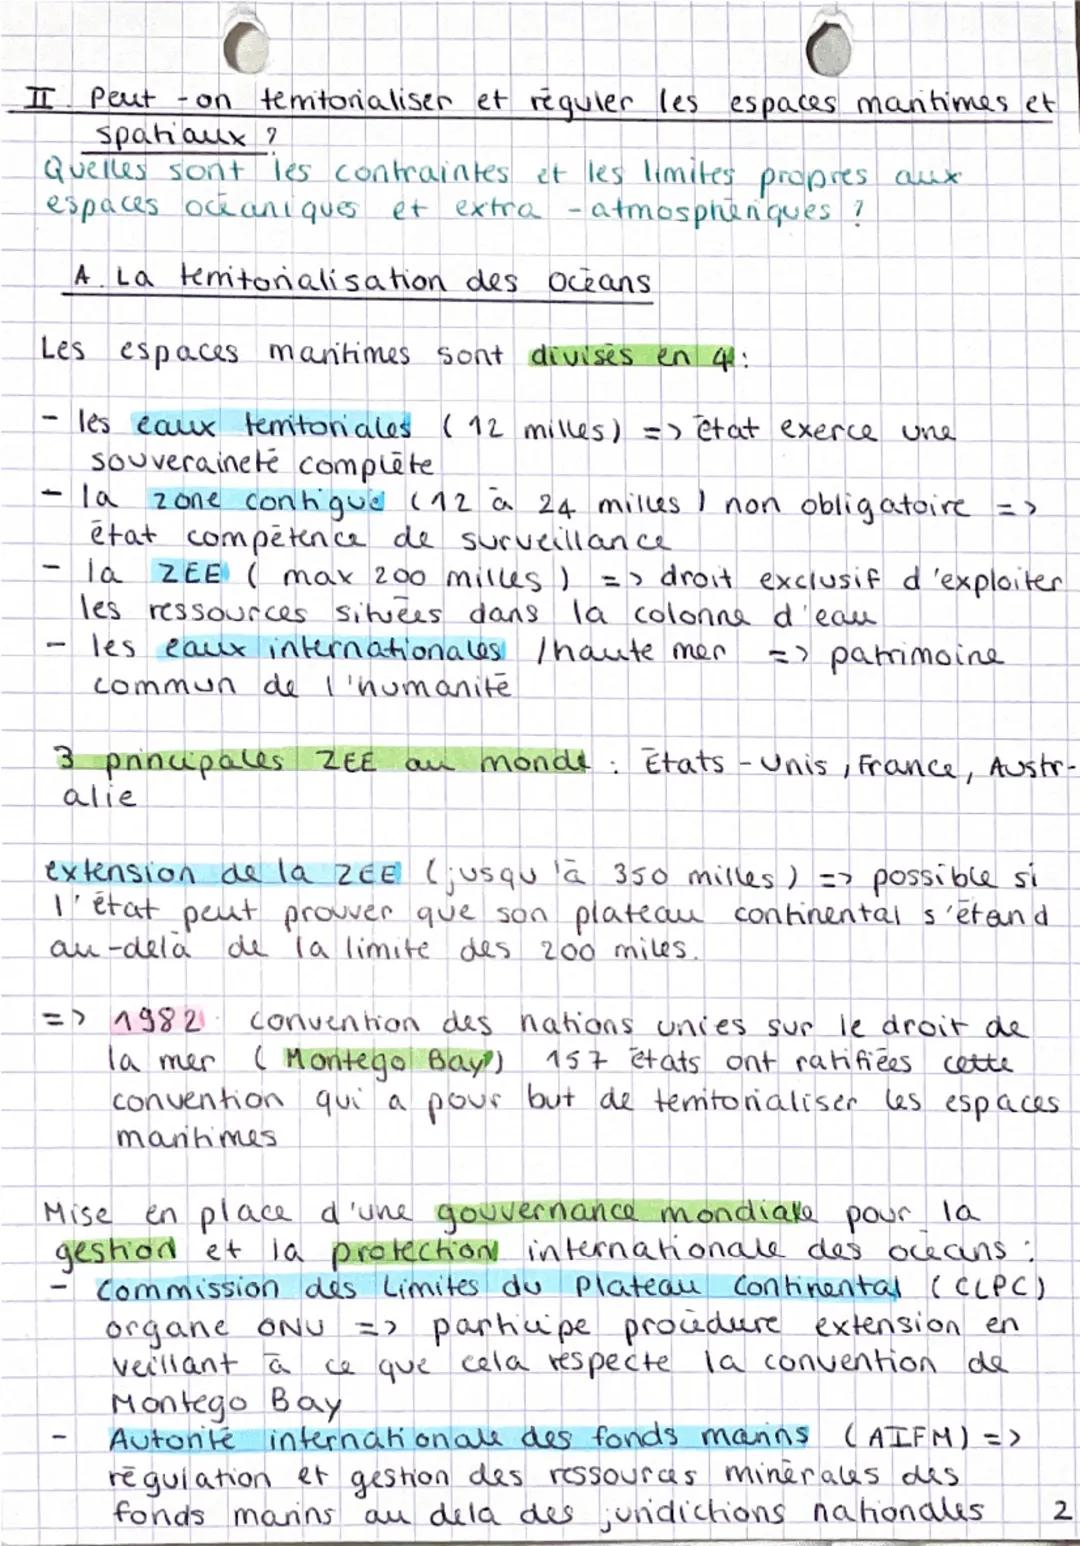 II. Peut-on territorialiser et réguler les espaces maritimes et
spatiaux ?
Quelles sont les contraintes et les limites propres aux
espaces océaniques et extra-atmosphériques ?
A. La territorialisation des océans
Les espaces maritimes sont divisés en 4 :
- les eaux territoriales (12 milles) => état exerce une
souveraineté complète
- la zone contiguë (12 à 24 milles) non obligatoire =>
état compétence de surveillance
- la ZEE (max 200 milles) => droit exclusif d'exploiter
les ressources situées dans la colonne d'eau
- les eaux internationales / haute mer => patrimoine
commun de l'humanité
3 principales ZEE au monde : États-Unis, France, Austr-
alie
extension de la ZEE (jusqu'à 350 milles) => possible si
l'état peut prouver que son plateau continental s'étand
au-delà de la limite des 200 miles.
=> 1982 convention des nations unies sur le droit de
la mer (Montego Bay) 157 états ont ratifiées cette
convention qui a pour but de territorialiser les espaces
maritimes
Mise en place d'une gouvernance mondiale pour la
gestion et la protection internationale des océans :
- Commission des Limites du Plateau Continental (CLPC)
organe ONU => participe procédure extension en
veillant à ce que cela respecte la convention de
Montego Bay
- Autorité internationale des fonds marins (AIFM) =>
régulation et gestion des ressources minérales des
fonds marins au dela des juridictions nationales 2